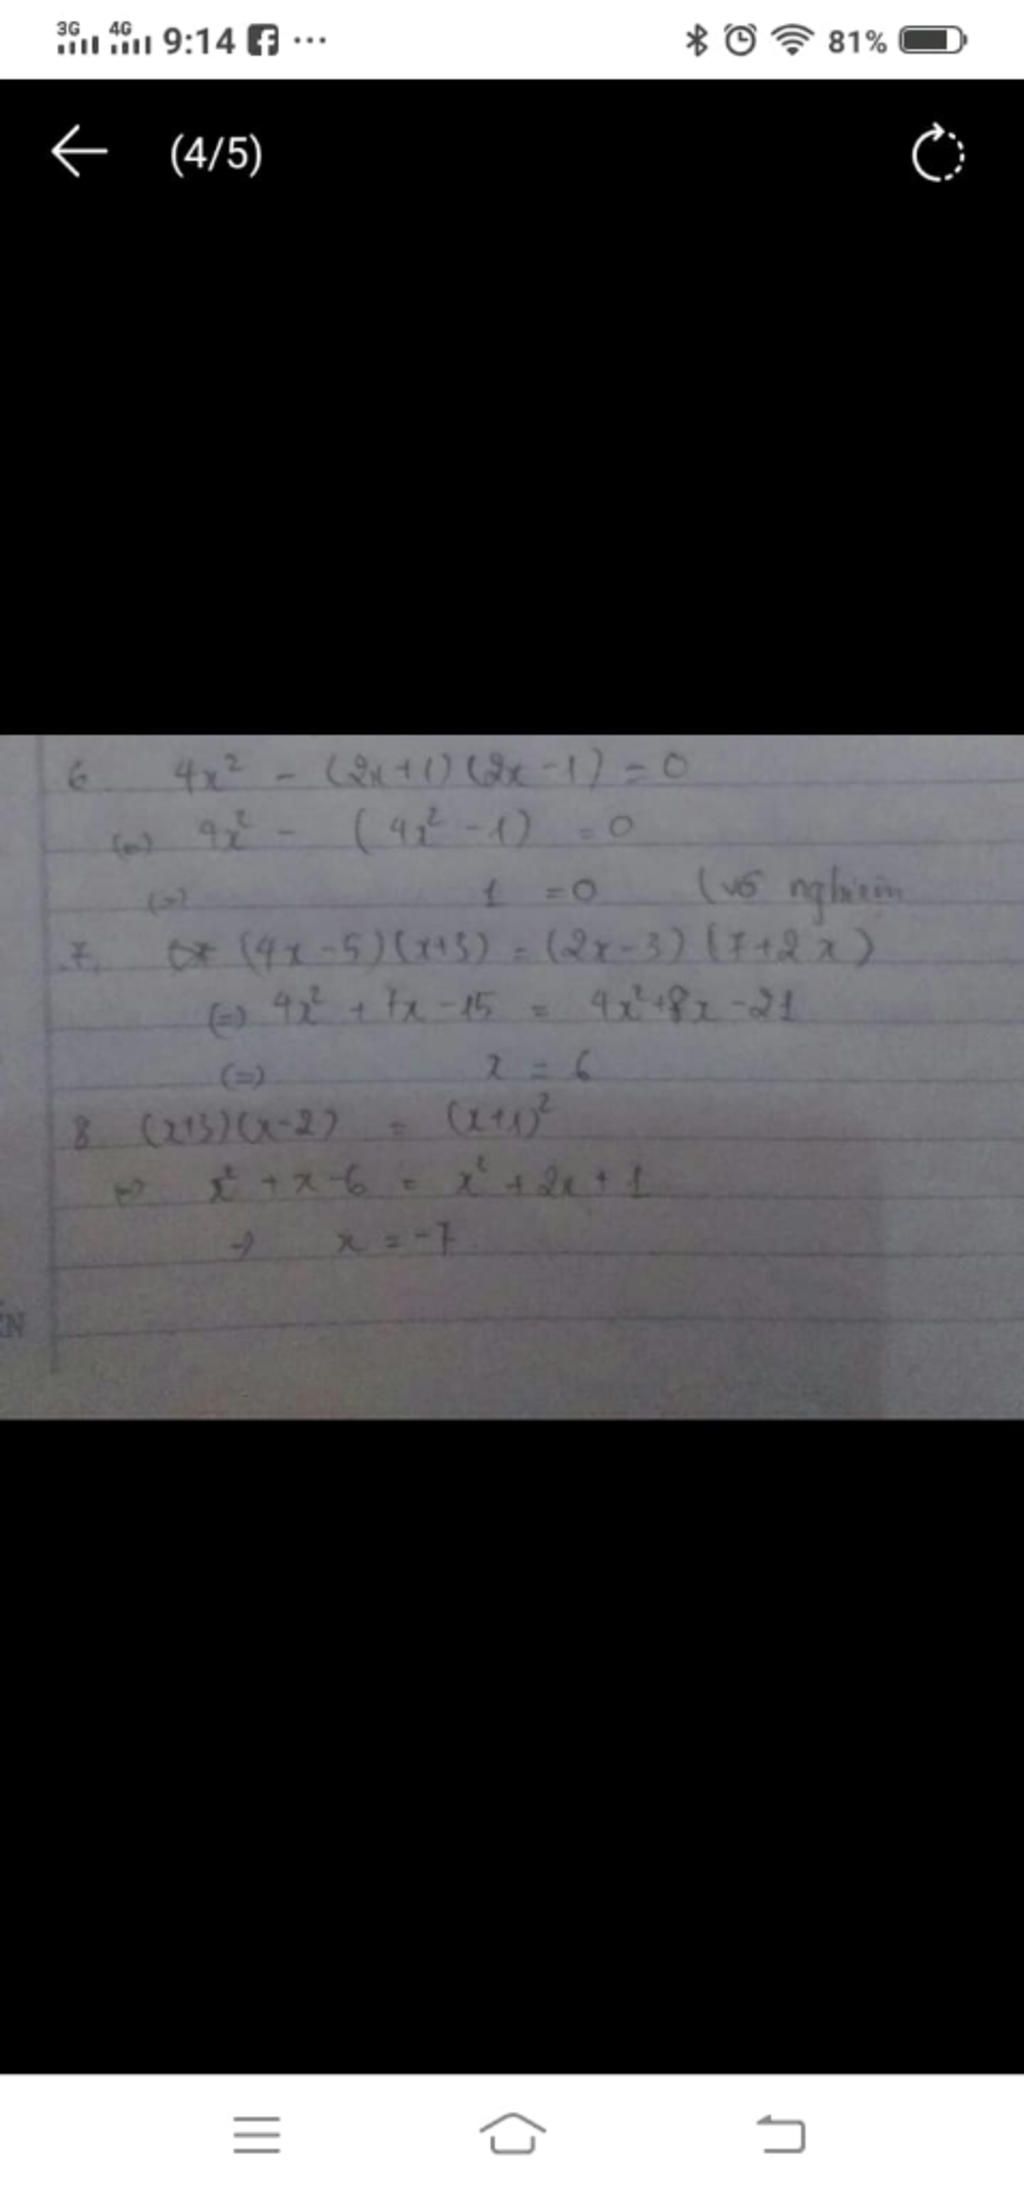 3G 4G 9:14 ... 81%
(4/5)
6 4x² - (2x+1)(2x-1) = 0
(=) 4x² - (4x² - 1) = 0
(=) 1 = 0 (vô nghiệm
7. (4x-5)(x+3) = (2x-3)(7+2x)
(=) 4x² + 7x - 15 = 4x²+8x - 21
(=) x = 6
8 (x+3)(x-2) = (x+1)²
=> x² + x - 6 = x² + 2x + 1
→ x = -7
EN